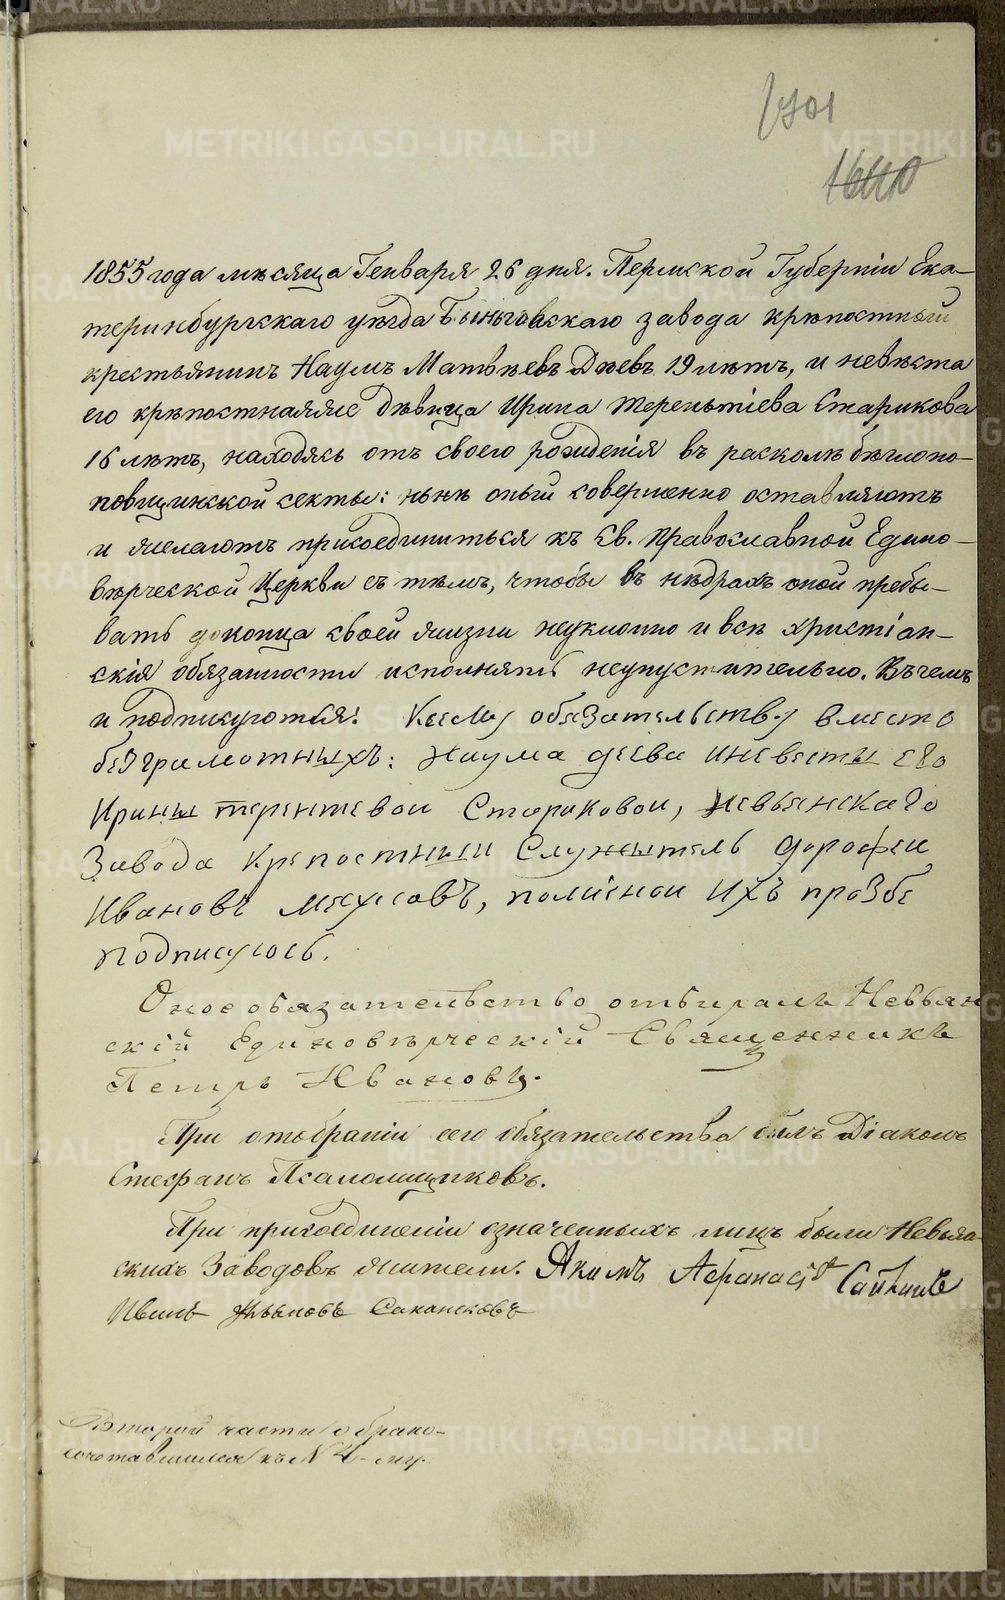 1701
1640
1855 года мѣсяца Генваря 26 дня. Пермской Губерніи Ека-
теринбургскаго уѣзда Быньговскаго завода крѣпостный
крестьянинъ Наумъ Матвѣевъ Дѣевъ 19 лѣтъ, и невѣста
его крѣпостнаяже дѣвица Ирина Терентіева Старикова
16 лѣтъ, находясь отъ своего рожденія въ расколѣ бѣглопо-
повщинской секты: нынѣ оный совершенно оставляютъ
и желаютъ присоединиться къ Св. Православной Едино-
вѣрческой Церкви съ тѣмъ, чтобы въ нѣдрахъ оной пребы-
вать доконца своей жизни неуклонно и всѣ христіан-
скія обязанности исполнять неупустительно. Въ чемъ
и подпикуются: Ксему обезательству вместо
безграмотныхъ: Наума деева иневесты его
Ирины терентевои Стариковои, Невьянскаго
Завода Крепостныи Служытель дорофеи
Ивановъ, полисной ихъ прозбе
подписуюсь.
Оное обязательство отбиралъ Невьян
скій Единовѣрческій Священникъ
Петръ Ивановъ.
При отобраніи сего обязательства былъ Діаконъ
Стефанъ Псаломщиковъ.
При присоединеніи означенныхъ лицъ были Невья-
скихъ Заводовъ жители. Якимъ Афанасі
Иванъ
Второй части о брако-
сочетавшихся къ N 4-му.
METRIKI.GASO-URAL.RU